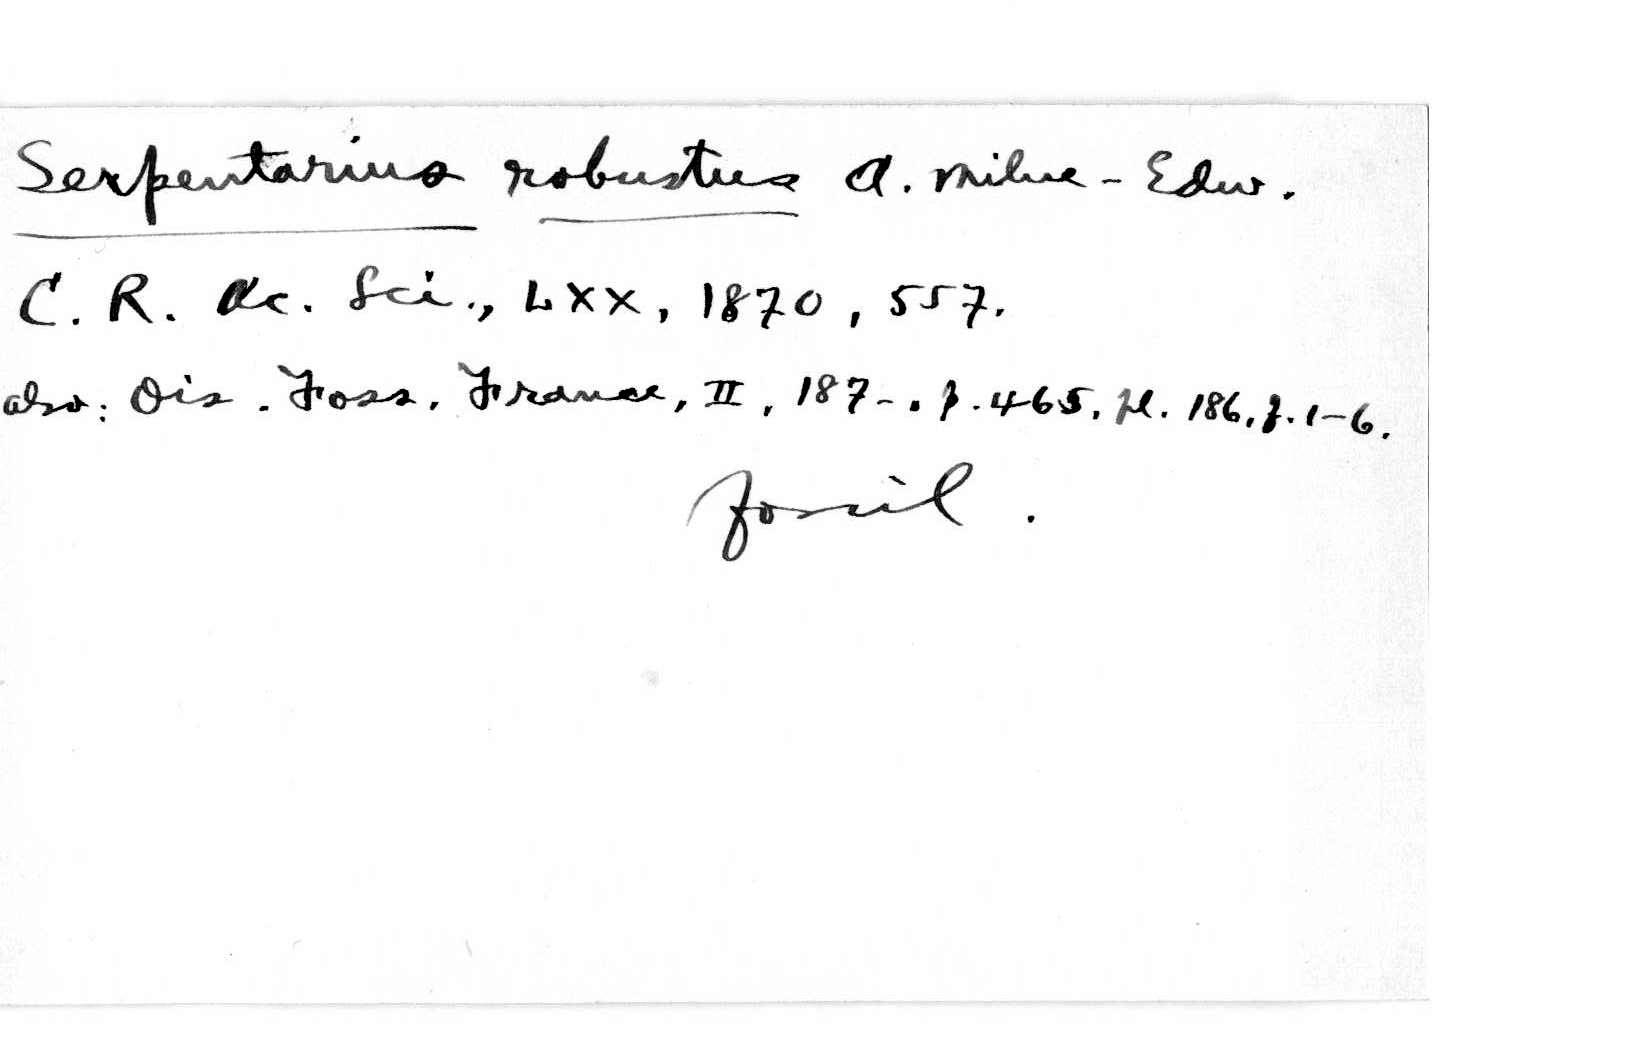 Serpentarius robustus A. Milne-Edw.
C. R. Ac. Sci., LXX, 1870, 557.
also: Ois. Foss. France, II, 187-. p. 465, pl. 186, f. 1-6.
fossil.